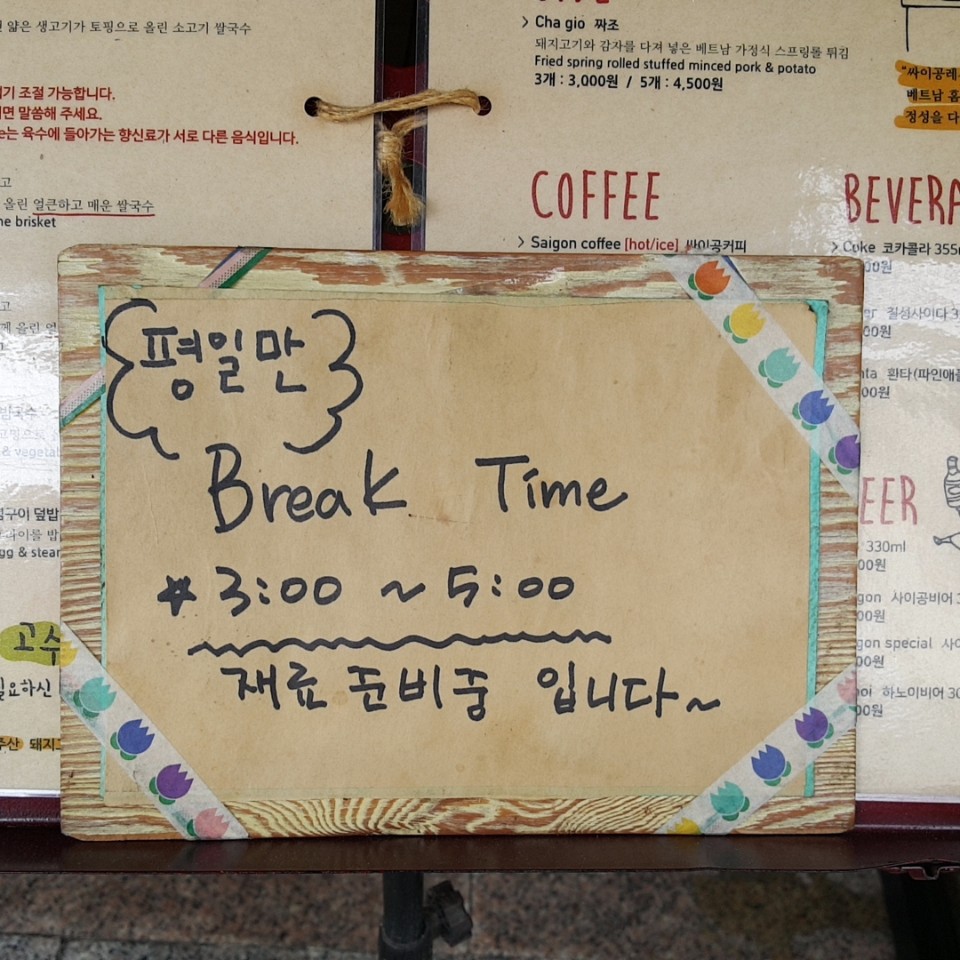 얇은 생고기가 토핑으로 올린 소고기 쌀국수
조절 가능합니다.
말씀해 주세요.
는 육수에 들어가는 향신료가 서로 다른 음식입니다.
고
올린 얼큰하고 매운 쌀국수
brisket
& vegeta
덮밥
고수
필요하신
돼지
> Cha gio 짜조
돼지고기와 감자를 다져 넣은 베트남 가정식 스프링롤 튀김
Fried spring rolled stuffed minced pork & potato
3개 : 3,000원 / 5개 : 4,500원
"싸이공레
베트남 홈
정성을 다
COFFEE
> Saigon coffee [hot/ice] 싸이공커피
BEVERA
> Coke 코카콜라 355
00원
칠성사이다
00원
nta 환타(파인애플
00원
EER
330ml
00원
gon 사이공비어
00원
gon special 사이
00원
noi 하노이비어 30
00원
평일만
Break Time
* 3:00 ~ 5:00
재료 준비중 입니다~